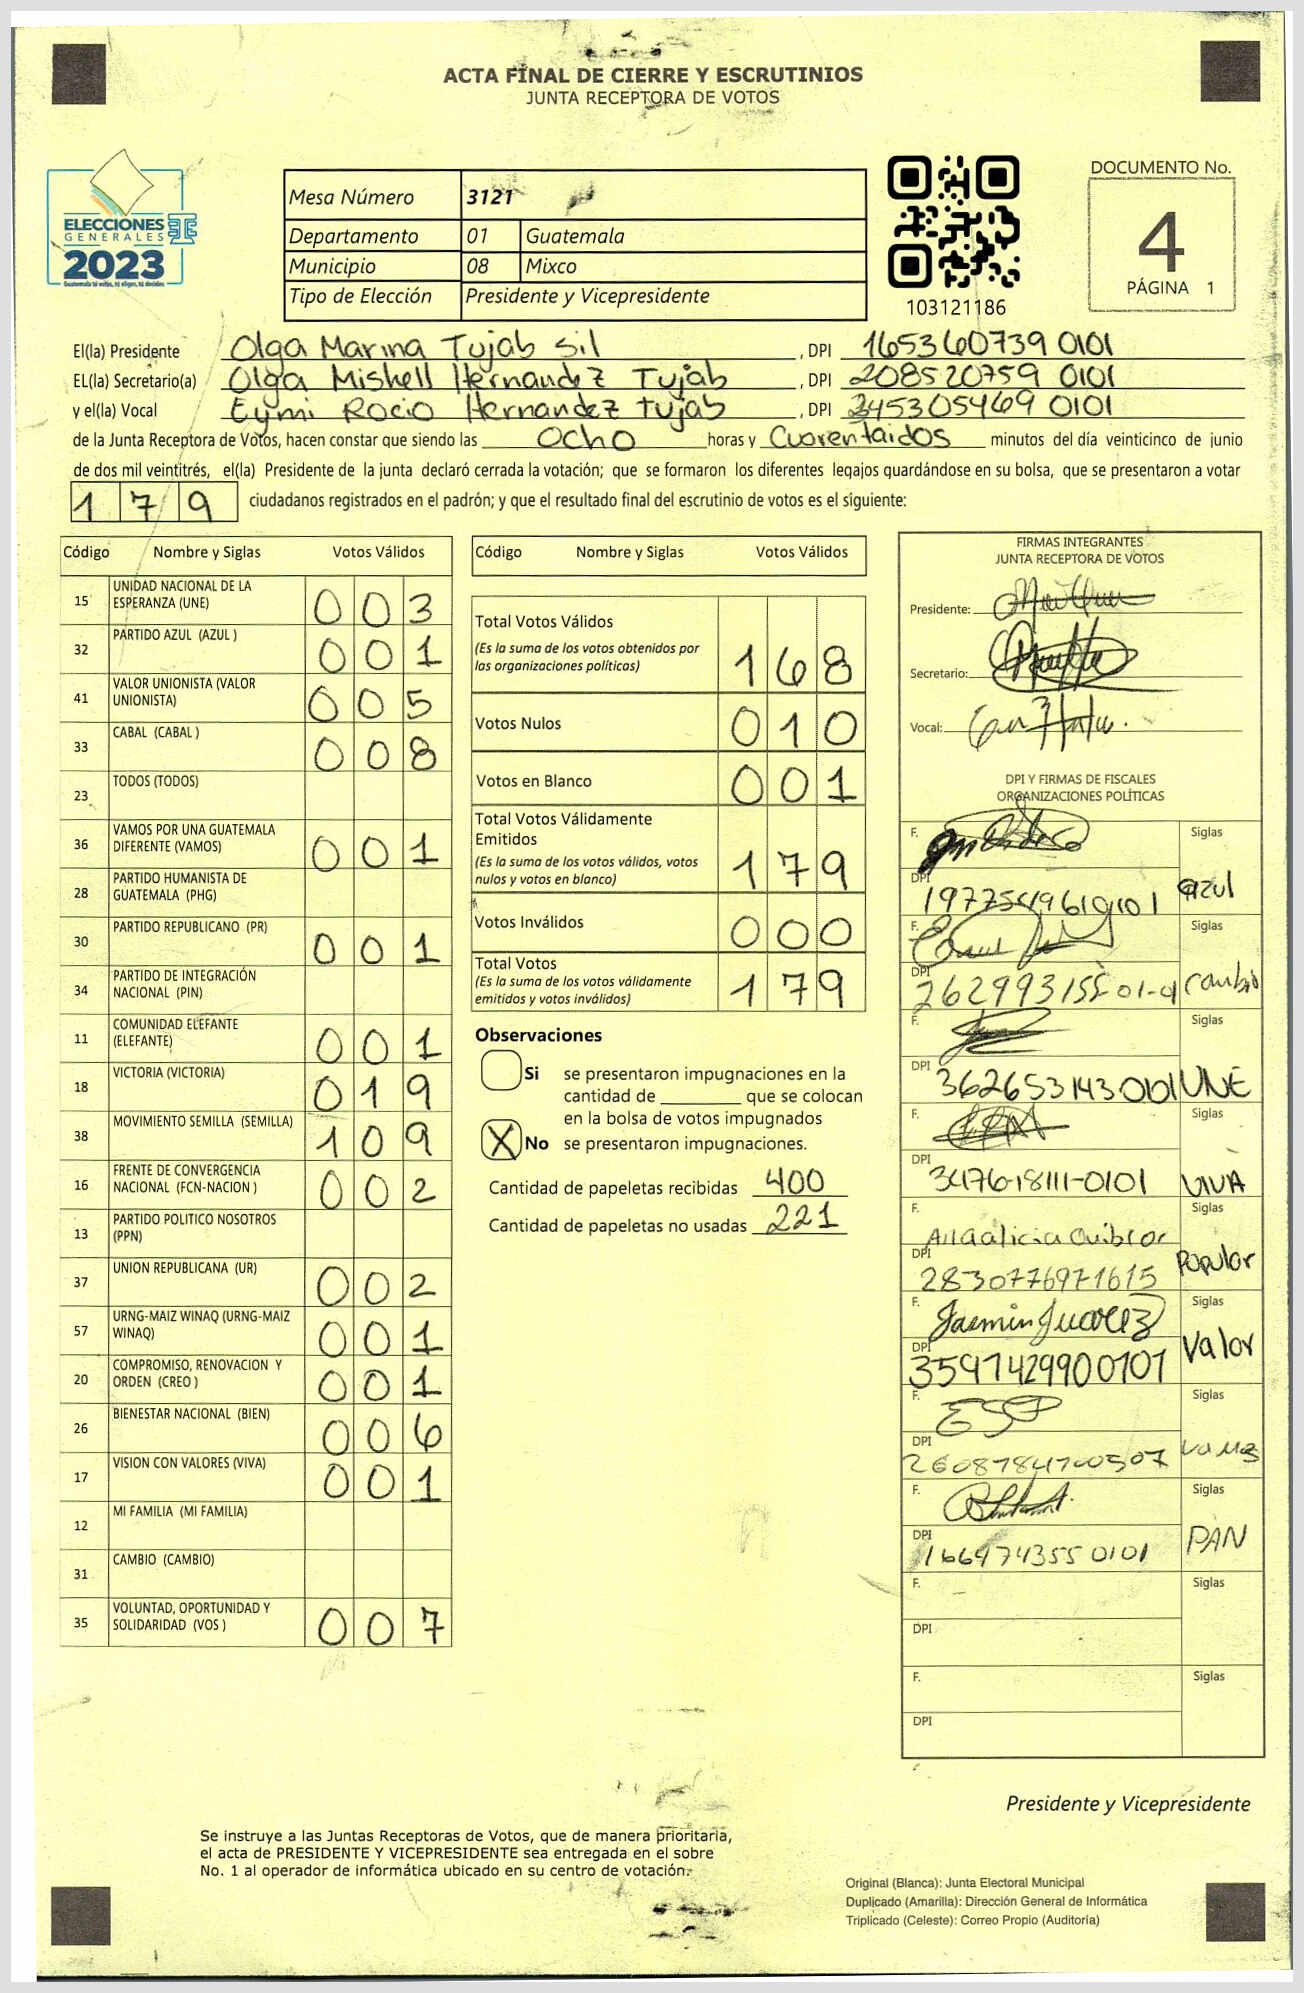 ACTA FINAL DE CIERRE Y ESCRUTINIOS
JUNTA RECEPTORA DE VOTOS
ELECCIONES
GENERALES
2023
Guatemala tú votas, tú eliges, tú decides
Mesa Número 3121
Departamento 01 Guatemala
Municipio 08 Mixco
Tipo de Elección Presidente y Vicepresidente
103121186
DOCUMENTO No.
4
PÁGINA 1
El(la) Presidente Olga Marina Tujab Sil , DPI 165360739 0101
EL(la) Secretario(a) Olga Mishell Hernandez Tujab , DPI 208520759 0101
y el(la) Vocal Eymi Rocio Hernandez Tujab , DPI 245305469 0101
de la Junta Receptora de Votos, hacen constar que siendo las Ocho horas y Cuarentaidos minutos del día veinticinco de junio
de dos mil veintitrés, el(la) Presidente de la junta declaró cerrada la votación; que se formaron los diferentes legajos quardándose en su bolsa, que se presentaron a votar
179 ciudadanos registrados en el padrón; y que el resultado final del escrutinio de votos es el siguiente:
Código Nombre y Siglas Votos Válidos
15 UNIDAD NACIONAL DE LA ESPERANZA (UNE) 003
32 PARTIDO AZUL (AZUL ) 001
41 VALOR UNIONISTA (VALOR UNIONISTA) 005
33 CABAL (CABAL ) 008
23 TODOS (TODOS)
36 VAMOS POR UNA GUATEMALA DIFERENTE (VAMOS) 001
28 PARTIDO HUMANISTA DE GUATEMALA (PHG)
30 PARTIDO REPUBLICANO (PR) 001
34 PARTIDO DE INTEGRACIÓN NACIONAL (PIN)
11 COMUNIDAD ELEFANTE (ELEFANTE) 001
18 VICTORIA (VICTORIA) 019
38 MOVIMIENTO SEMILLA (SEMILLA) 109
16 FRENTE DE CONVERGENCIA NACIONAL (FCN-NACION ) 002
13 PARTIDO POLITICO NOSOTROS (PPN)
37 UNION REPUBLICANA (UR) 002
57 URNG-MAIZ WINAQ (URNG-MAIZ WINAQ) 001
20 COMPROMISO, RENOVACION Y ORDEN (CREO ) 001
26 BIENESTAR NACIONAL (BIEN) 006
17 VISION CON VALORES (VIVA) 001
12 MI FAMILIA (MI FAMILIA)
31 CAMBIO (CAMBIO)
35 VOLUNTAD, OPORTUNIDAD Y SOLIDARIDAD (VOS ) 007
Código Nombre y Siglas Votos Válidos
Total Votos Válidos 168
(Es la suma de los votos obtenidos por
las organizaciones políticas)
Votos Nulos 010
Votos en Blanco 001
Total Votos Válidamente
Emitidos 179
(Es la suma de los votos válidos, votos
nulos y votos en blanco)
Votos Inválidos 000
Total Votos 179
(Es la suma de los votos válidamente
emitidos y votos inválidos)
Observaciones
Si se presentaron impugnaciones en la
cantidad de ________ que se colocan
en la bolsa de votos impugnados
X No se presentaron impugnaciones.
Cantidad de papeletas recibidas 400
Cantidad de papeletas no usadas 221
FIRMAS INTEGRANTES
JUNTA RECEPTORA DE VOTOS
Presidente:
Secretario:
Vocal:
DPI Y FIRMAS DE FISCALES
ORGANIZACIONES POLÍTICAS
F. Siglas
DPI azul
F. Siglas
DPI 262993155 01-01 Cambio
F. Siglas
DPI 362653143 0101 UNE
F. Siglas
DPI 347618111-0101 VIVA
F. Siglas
DPI 2830776971615 Popular
F. Jasmin Juarez Siglas
DPI 3597429900101 Valor
F. Siglas
DPI 2608784700507 Vamos
F. Siglas
DPI 166974355 0101 PAN
F. Siglas
DPI
F. Siglas
DPI
Presidente y Vicepresidente
Se instruye a las Juntas Receptoras de Votos, que de manera prioritaria,
el acta de PRESIDENTE Y VICEPRESIDENTE sea entregada en el sobre
No. 1 al operador de informática ubicado en su centro de votación.
Original (Blanca): Junta Electoral Municipal
Duplicado (Amarilla): Dirección General de Informática
Triplicado (Celeste): Correo Propio (Auditoría)